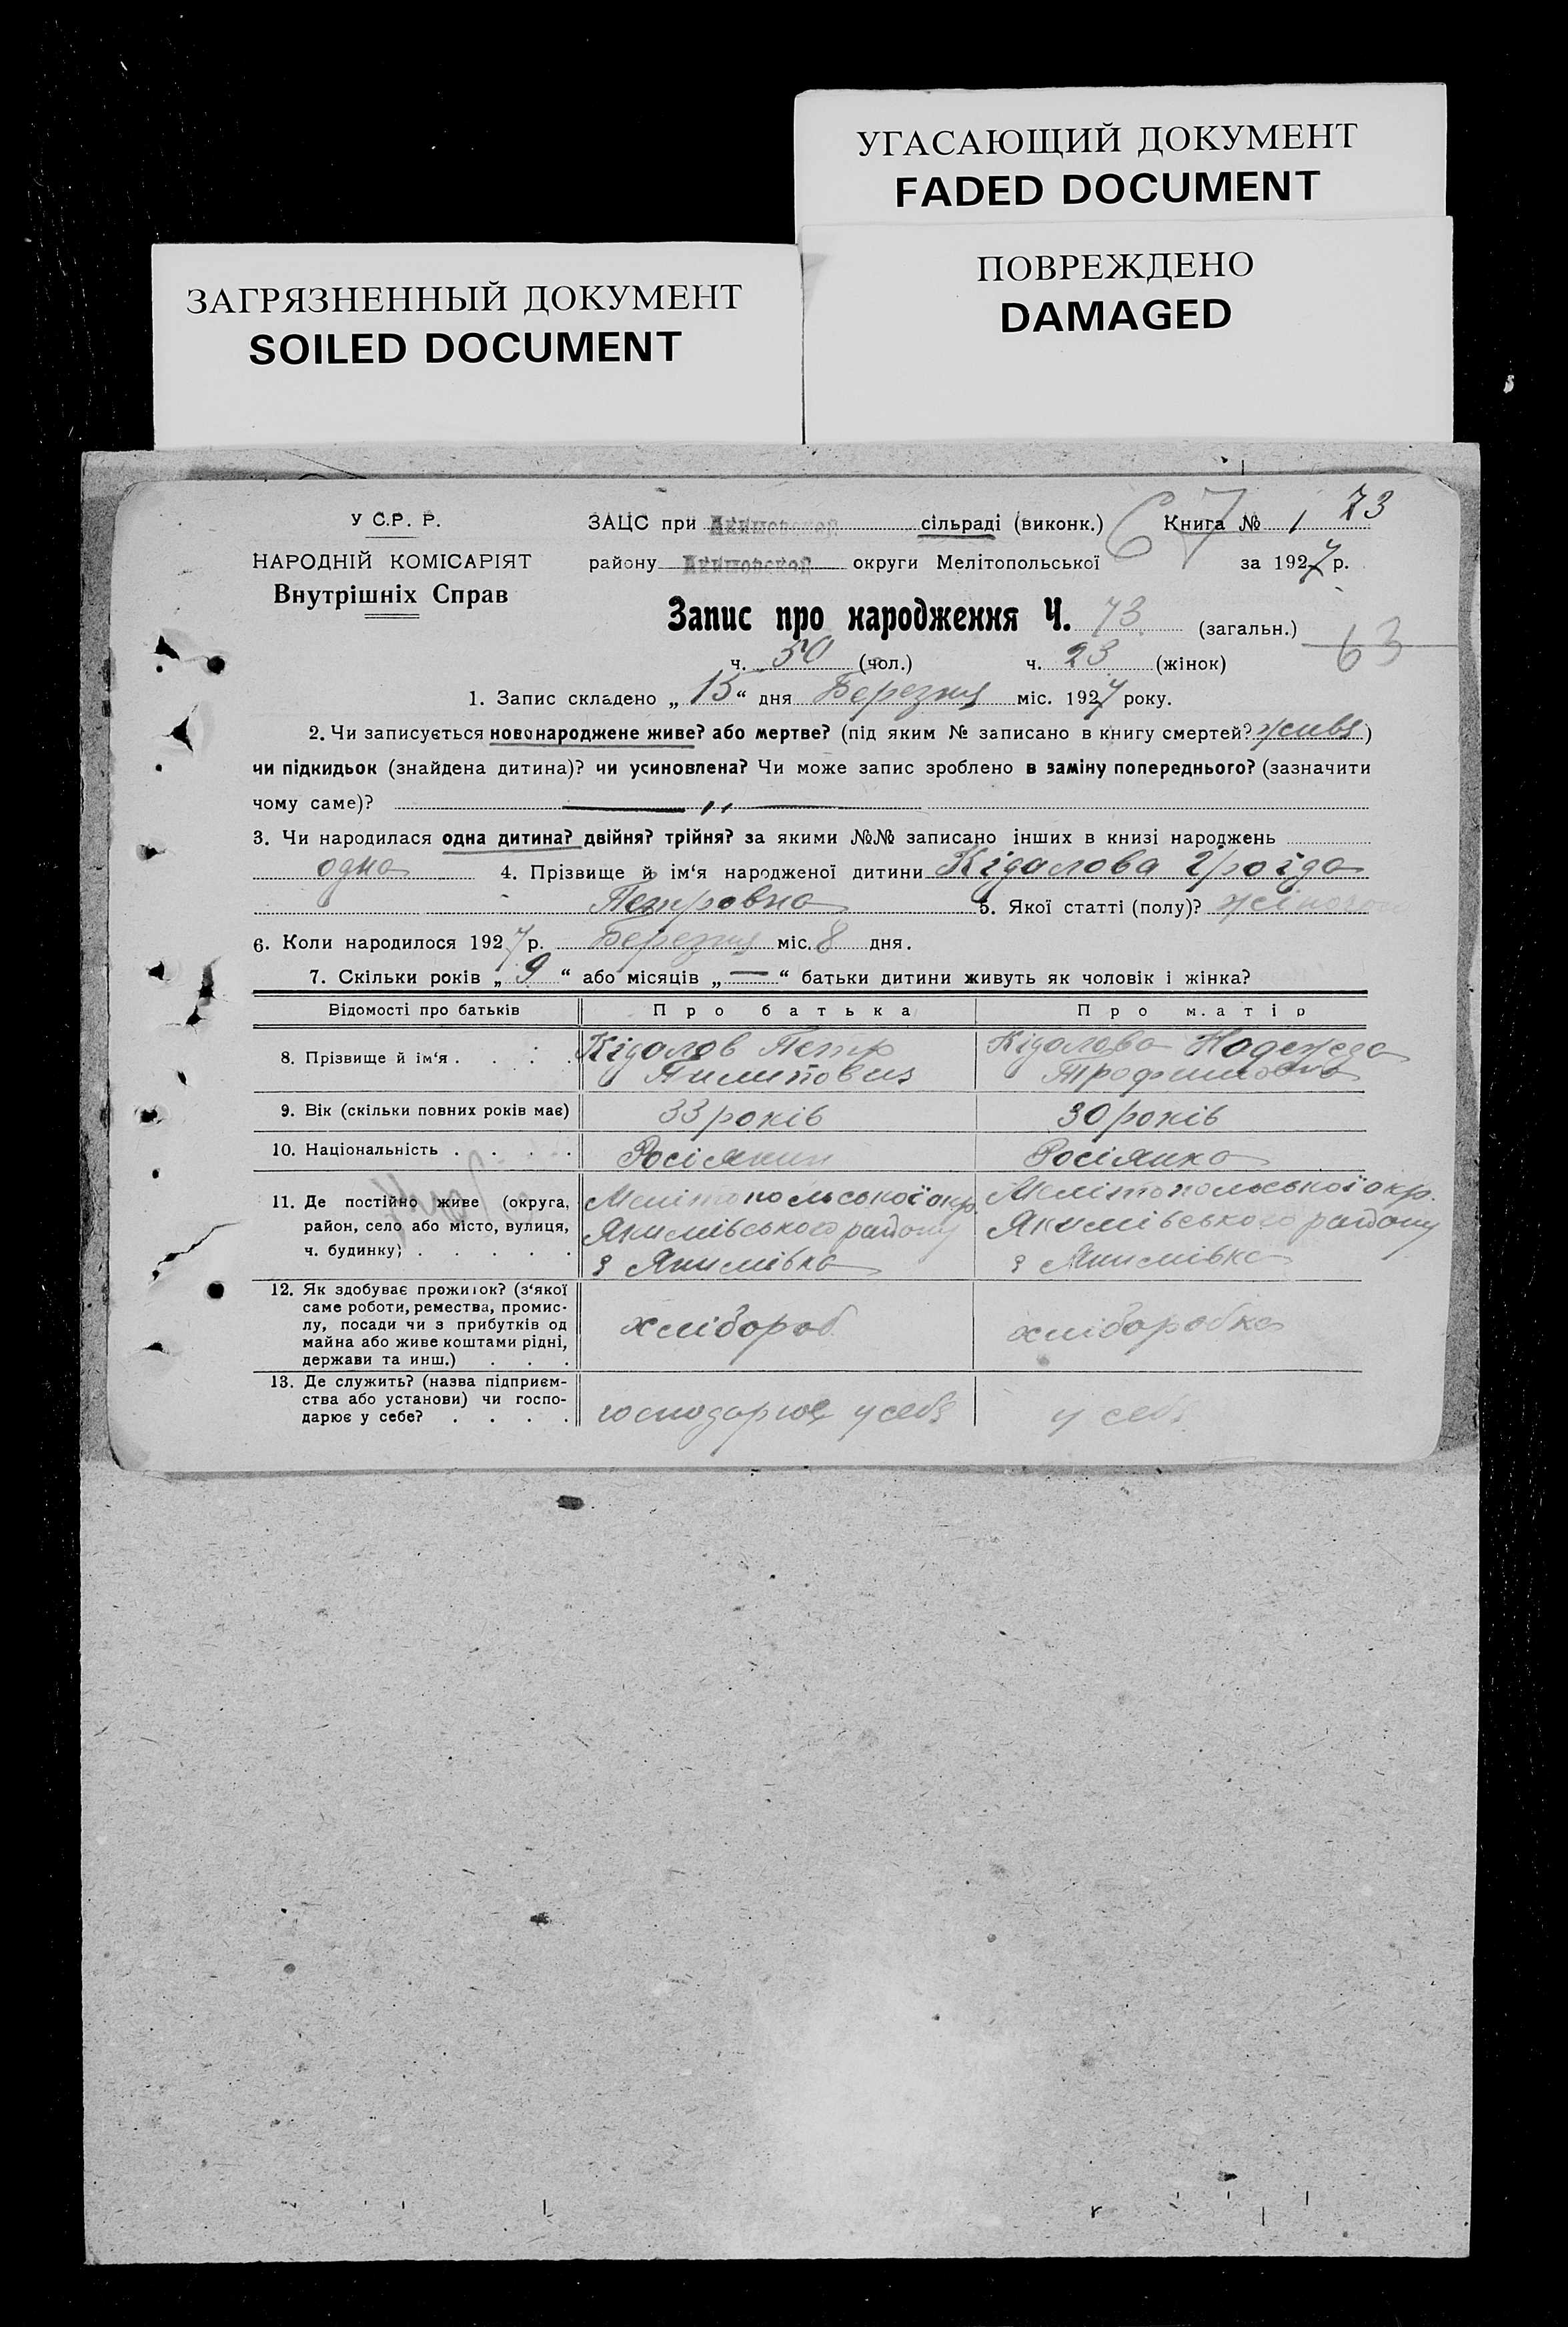 УГАСАЮЩИЙ ДОКУМЕНТ
FADED DOCUMENT
ПОВРЕЖДЕНО
DAMAGED
ЗАГРЯЗНЕННЫЙ ДОКУМЕНТ
SOILED DOCUMENT
У С.Р. Р.
НАРОДНІЙ КОМІСАРІЯТ
Внутрішніх Справ
67
73
ЗАЦС при Акимовской сільраді (виконк.) Книга № 1
району Акимовской округи Мелітопольської за 1927 р.
Запис про народження Ч. 73 (загальн.)
63
ч. 50 (чол.) ч. 23 (жінок)
1. Запис складено „ 15 “ дня Березня міс. 1927 року.
2. Чи записується новонароджене живе? або мертве? (під яким № записано в книгу смертей? живе)
чи підкидьок (знайдена дитина)? чи усиновлена? Чи може запис зроблено в заміну попереднього? (зазначити
чому саме)? — „ —
3. Чи народилася одна дитина? двійня? трійня? за якими №№ записано інших в книзі народжень
одна 4. Прізвище й ім‘я народженої дитини Кідалова
Петровна 5. Якої статті (полу)? жіночої
6. Коли народилося 1927 р. Березня міс. 8 дня.
7. Скільки років „ 9 “ або місяців „ — “ батьки дитини живуть як чоловік і жінка?
Відомості про батьків Про батька Про матір
8. Прізвище й ім‘я . . . . Кідалов Петр Кідалова Надежда
Трофимовна
9. Вік (скільки повних років має) 33 років 30 років
10. Національність . . . . Росіянин Росіянка
11. Де постійно живе (округа, Мелітопольської окр. Мелітопольської окр.
район, село або місто, вулиця, Якимівського району Якимівського району
ч. будинку) . . . . . . з Якимівка з Якимівка
12. Як здобуває прожиток? (з‘якої
саме роботи, ремества, промис-
лу, посади чи з прибутків од хлібороб хліборобка
майна або живе коштами рідні,
держави та инш.) . . .
13. Де служить? (назва підприєм-
ства або установи) чи госпо- господарює у себе у себе
дарює у себе? . . . .